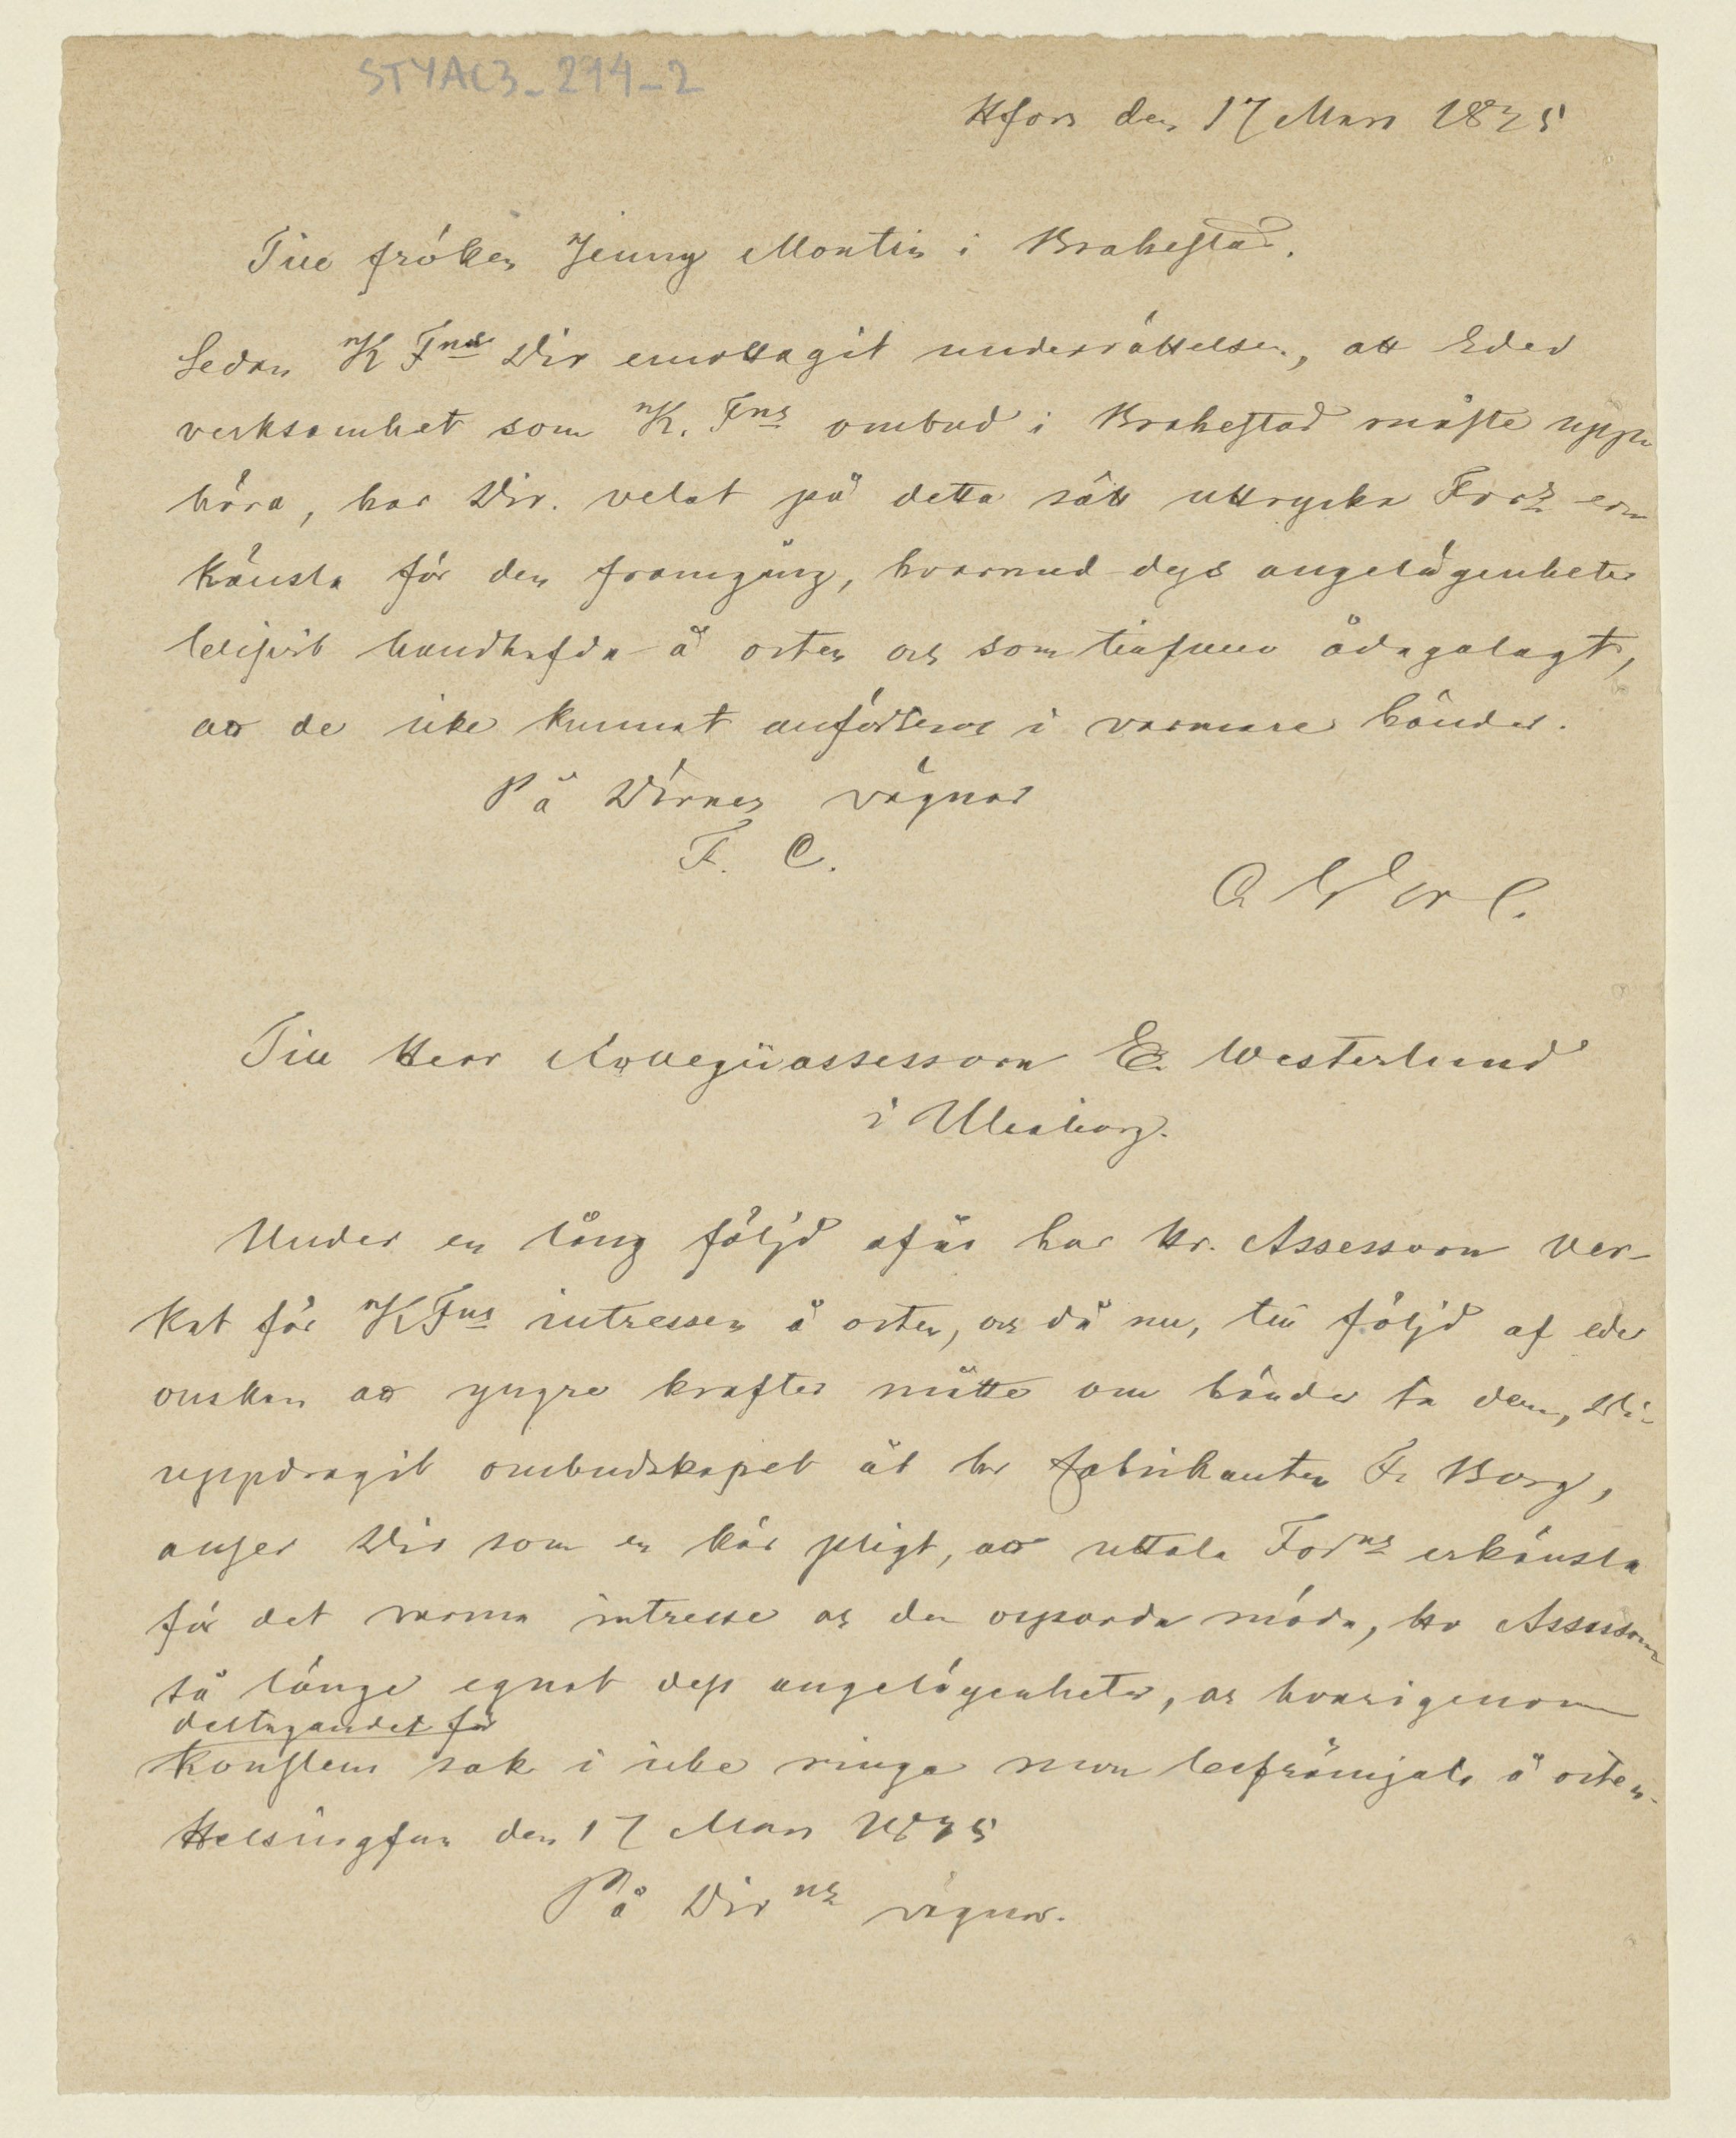 STYAC3_294_2
Hfors den 17 Mars 1875
Till fröken Jenny Montin i Brahestad.
Sedan K Fns Dir emottagit underrättelsen, att Eder
verksamhet som K. Fns ombud i Brahestad måste upp-
höra, har Dir. velat på detta sätt uttrycka Förns er-
känsla för den framgång, hvarmed dess angelägenheter
blifvit handhafda å orten och som tillfullo ådagalagt,
att de icke kunnat anförtros i varmare händer.
På Dirnes vägnar
F. C.
Till Herr Kollegiiassessorn E. Westerlund
i Uleåborg.
Under en lång följd af år har Hr. Assessorn ver-
kat för K Fns intressen å orten, och då nu, till följd af eder
önskan att yngre krafter måtte om händer ta dem, Dir
uppdragit ombudskapet åt hr fabrikanten Fr Borg,
anser Dir som en kär pligt, att uttala Förns erkänsla
för det varma intresse och den osparda möda, Hr Assessorn
så länge egnat dess angelägenheter, och hvarigenom
deltagandet för
konstens sak i icke ringa mon befrämjats å orten.
Helsingfors den 17 Mars 1875
På Dirns vägnar.